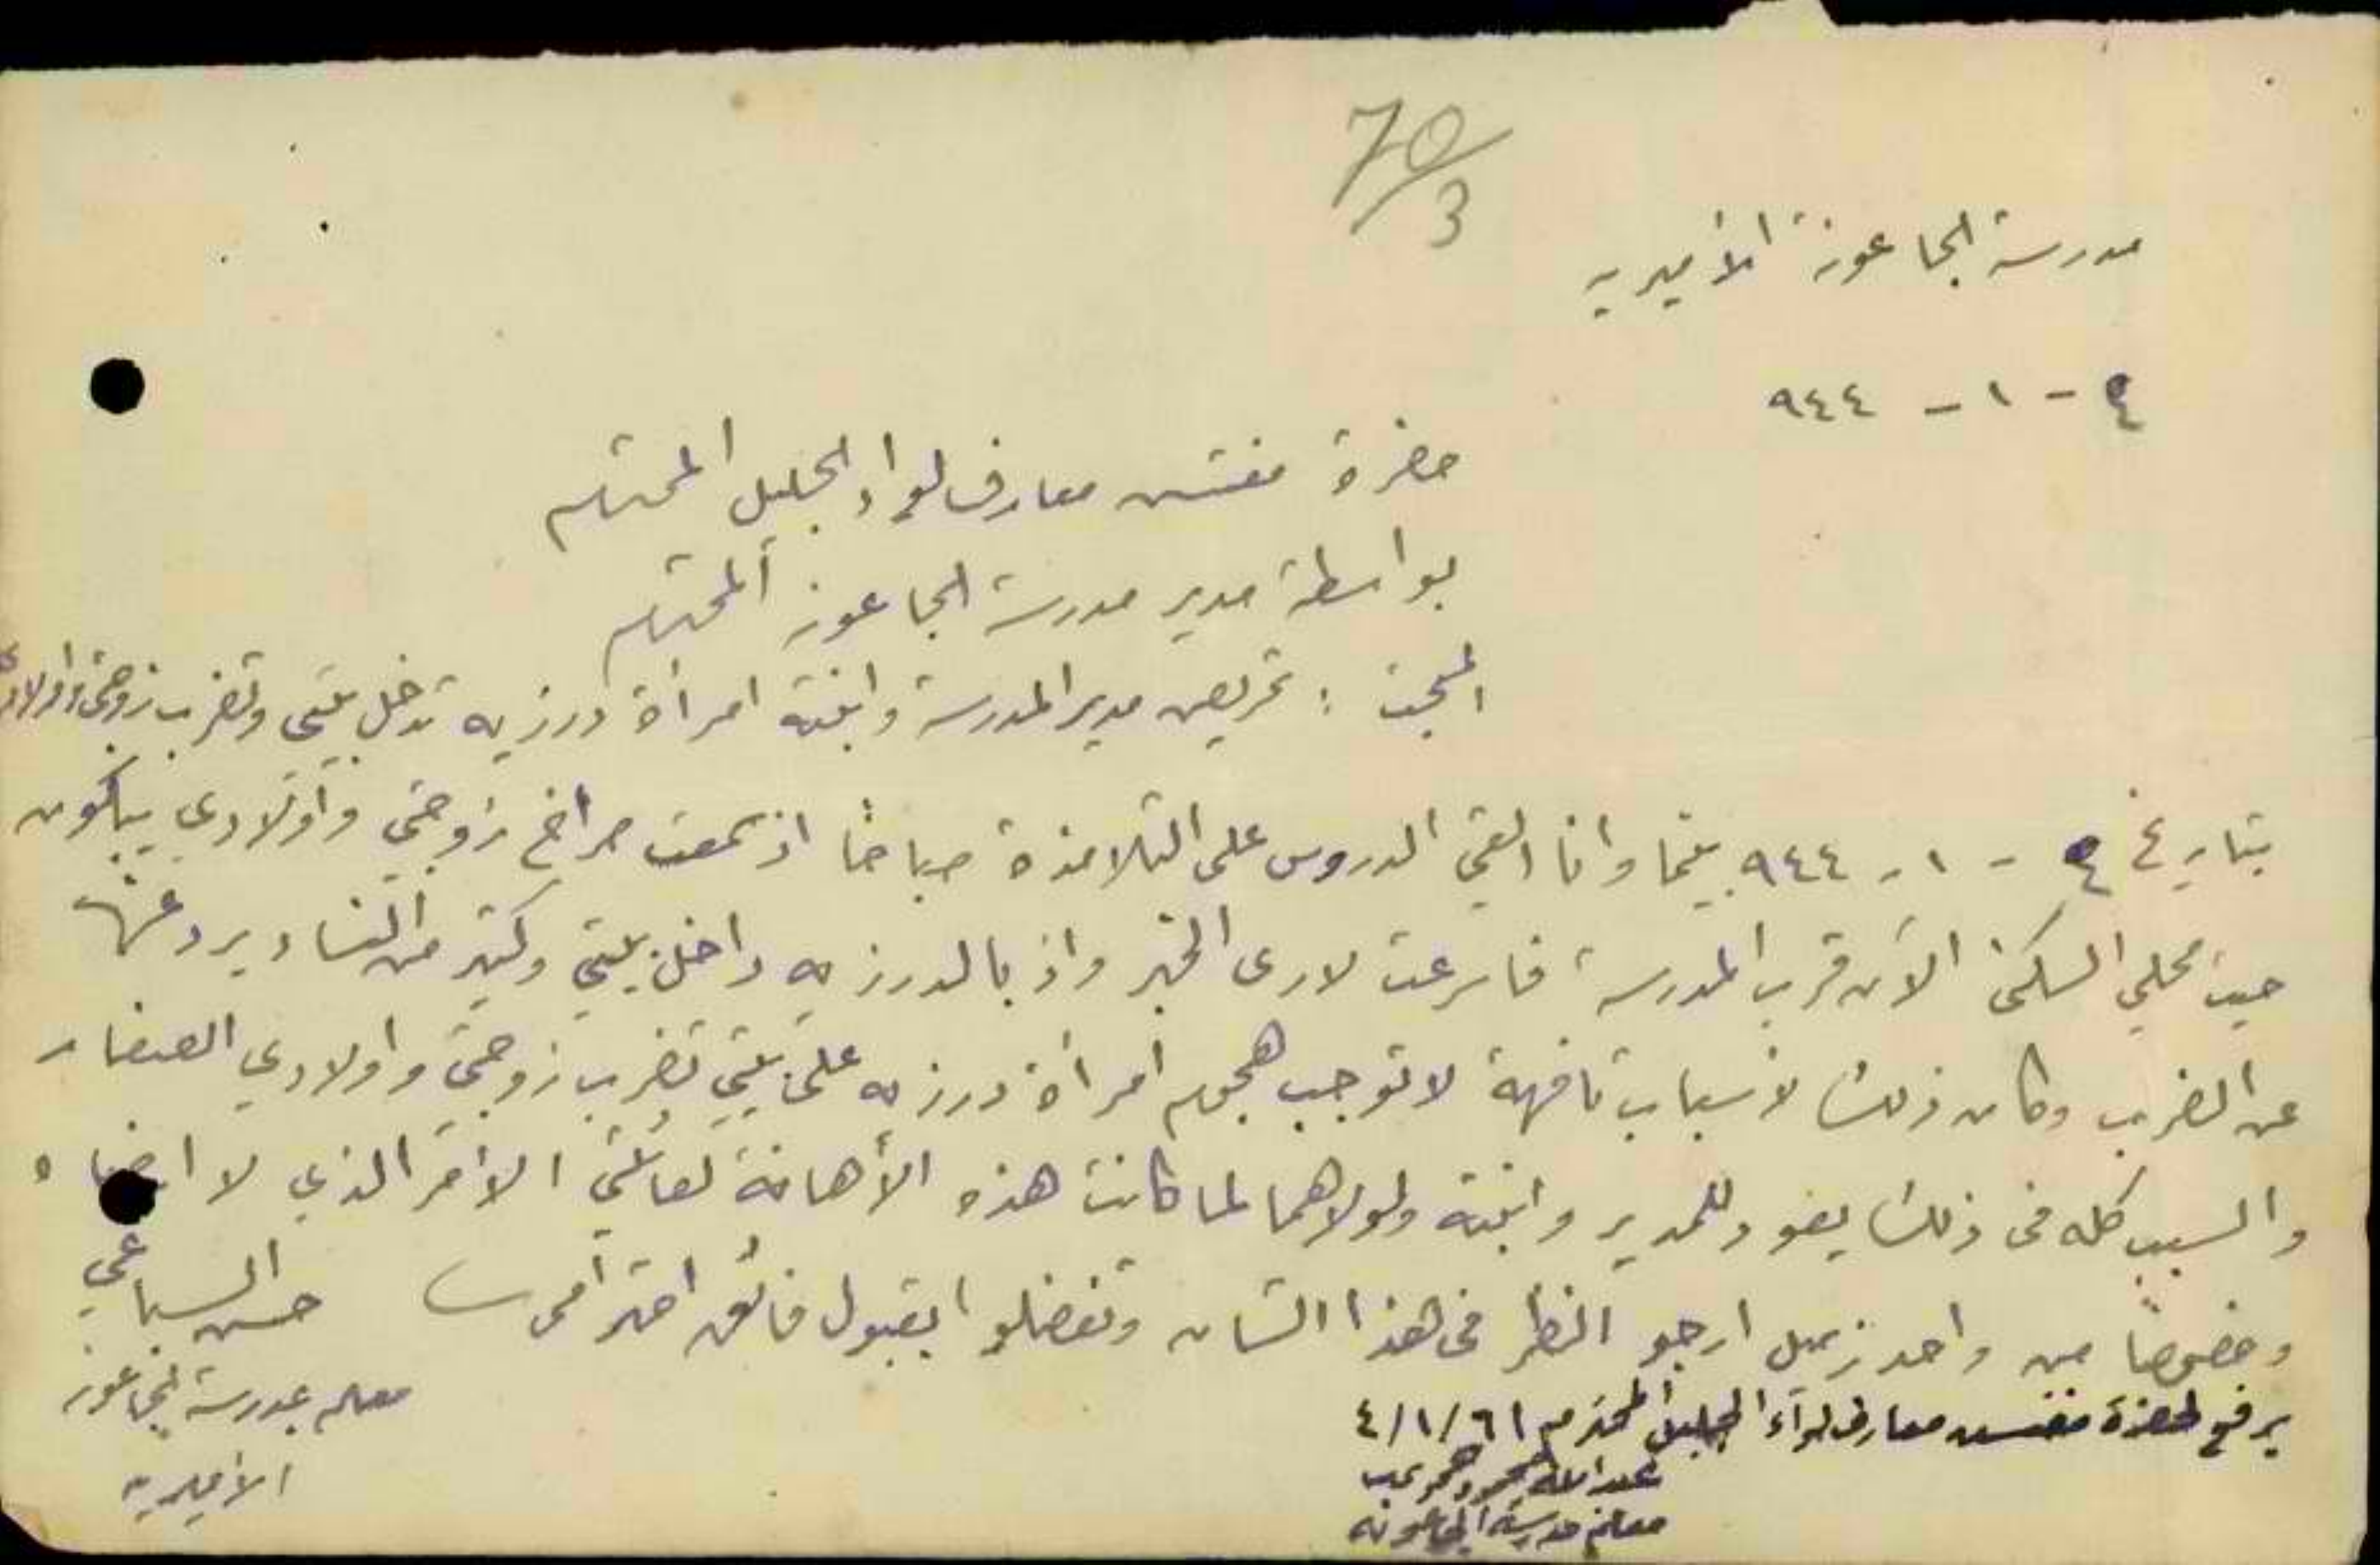 70/3
مدرسة الجاعونة الأميريه
٤ - ١ - ٩٤٤
حضرة مفتش معارف لواء الجليل المحترم
بواسطة مدير مدرسة الجاعونة المحترم
المبحث : تحريض مدير المدرسة وابنته امرأة درزيه تدخل بيتي وتضرب زوجتي واولادي
بتاريخ ٤ - ١ - ٩٤٤ بينما وانا القي الدروس على التلامذة صباحاً اذ سمعت صراخ زوجتي واولادي يبكون
حيث محلي السكن الآن قرب المدرسة فاسرعت لارى الخبر واذ بالدرزيه داخل بيتي وكثير من النساء يردعنها
عن الضرب وكان ذلك لأسباب تافهة لا توجب هجوم امرأة درزيه على بيتي تضرب زوجتي واولادي الصغار
والسبب كله في ذلك يعود للمدير وابنته ولولاهما لما كانت هذه الأهانة لعائلتي الأمر الذي لا ارضاه
وخصوصاً من واحد زميل ارجو النظر في هذا الشان وتفضلوا بقبول فائق احترامي
حسن السباعي
معلم بمدرسة الجاعونة
الأميريه
يرفع لحضرة مفتش معارف لواء الجليل المحترم
عبدالله محمود
معلم مدرسة الجاعونه